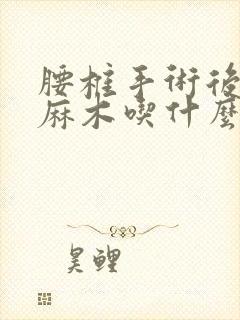 腰椎手術後
麻木喫什麼
昊鲤